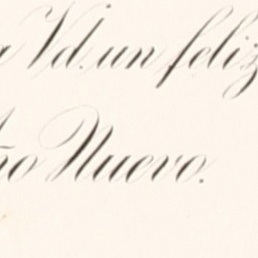 a Vd. un feliz
ño Nuevo.